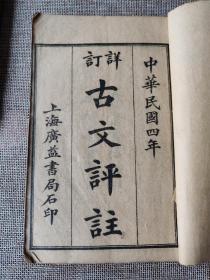 中華民國四年
詳訂
古文評註
上海廣益書局石印